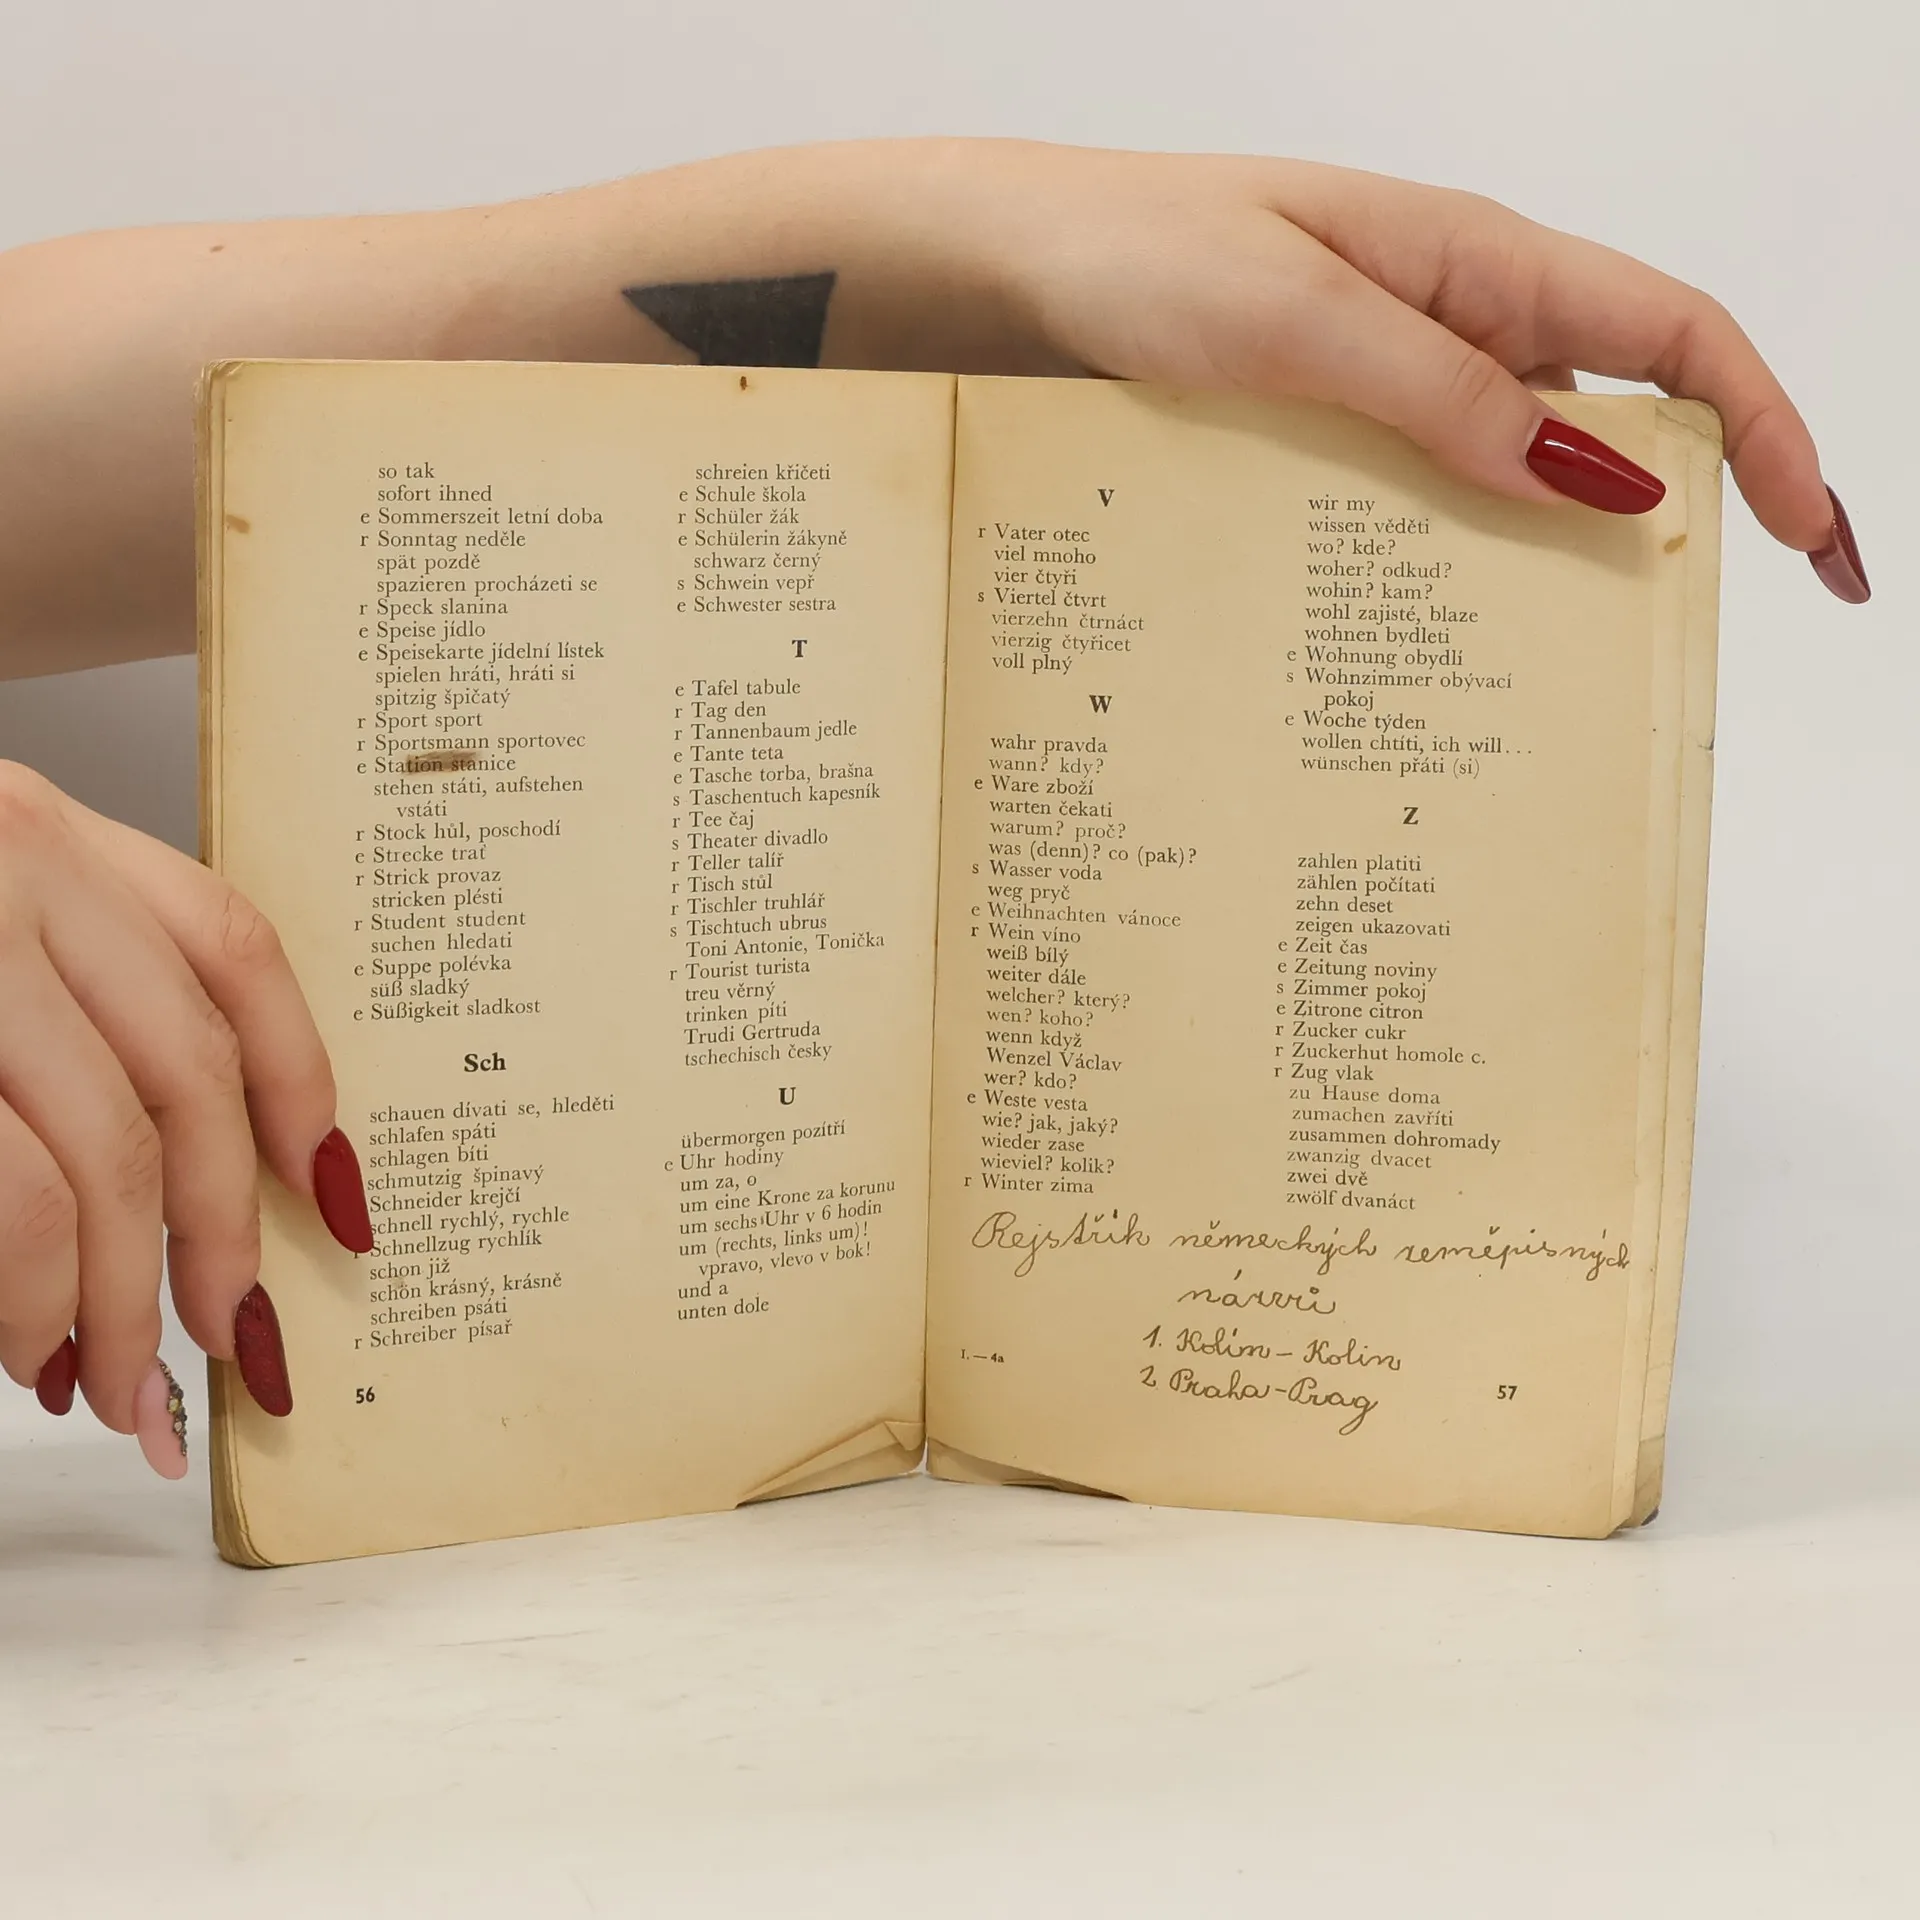 so tak
sofort ihned
e Sommerszeit letní doba
r Sonntag neděle
spät pozdě
spazieren procházeti se
r Speck slanina
e Speise jídlo
e Speisekarte jídelní lístek
spielen hráti, hráti si
spitzig špičatý
r Sport sport
r Sportsmann sportovec
e Station stanice
stehen státi, aufstehen
vstáti
r Stock hůl, poschodí
e Strecke trať
r Strick provaz
stricken plésti
r Student student
suchen hledati
e Suppe polévka
süß sladký
e Süßigkeit sladkost
Sch
schauen dívati se, hleděti
schlafen spáti
schlagen bíti
schmutzig špinavý
Schneider krejčí
schnell rychlý, rychle
r Schnellzug rychlík
schon již
schön krásný, krásně
schreiben psáti
r Schreiber písař
56
schreien křičeti
e Schule škola
r Schüler žák
e Schülerin žákyně
schwarz černý
s Schwein vepř
e Schwester sestra
T
e Tafel tabule
r Tag den
r Tannenbaum jedle
e Tante teta
e Tasche torba, brašna
s Taschentuch kapesník
r Tee čaj
s Theater divadlo
r Teller talíř
r Tisch stůl
r Tischler truhlář
s Tischtuch ubrus
Toni Antonie, Tonička
r Tourist turista
treu věrný
trinken píti
Trudi Gertruda
tschechisch česky
U
übermorgen pozítří
e Uhr hodiny
um za, o
um eine Krone za korunu
um sechs Uhr v 6 hodin
um (rechts, links um)!
vpravo, vlevo v bok!
und a
unten dole
V
r Vater otec
viel mnoho
vier čtyři
s Viertel čtvrt
vierzehn čtrnáct
vierzig čtyřicet
voll plný
W
wahr pravda
wann? kdy?
e Ware zboží
warten čekati
warum? proč?
was (denn)? co (pak)?
s Wasser voda
weg pryč
e Weihnachten vánoce
r Wein víno
weiß bílý
weiter dále
welcher? který?
wen? koho?
wenn když
Wenzel Václav
wer? kdo?
e Weste vesta
wie? jak, jaký?
wieder zase
wieviel? kolik?
r Winter zima
wir my
wissen věděti
wo? kde?
woher? odkud?
wohin? kam?
wohl zajisté, blaze
wohnen bydleti
e Wohnung obydlí
s Wohnzimmer obývací
pokoj
e Woche týden
wollen chtíti, ich will...
wünschen přáti (si)
Z
zahlen platiti
zählen počítati
zehn deset
zeigen ukazovati
e Zeit čas
e Zeitung noviny
s Zimmer pokoj
e Zitrone citron
r Zucker cukr
r Zuckerhut homole c.
r Zug vlak
zu Hause doma
zumachen zavříti
zusammen dohromady
zwanzig dvacet
zwei dvě
zwölf dvanáct
Rejstřík německých zeměpisných
názvů
1. Kolín - Kolin
2 Praha - Prag
I. — 4a
57